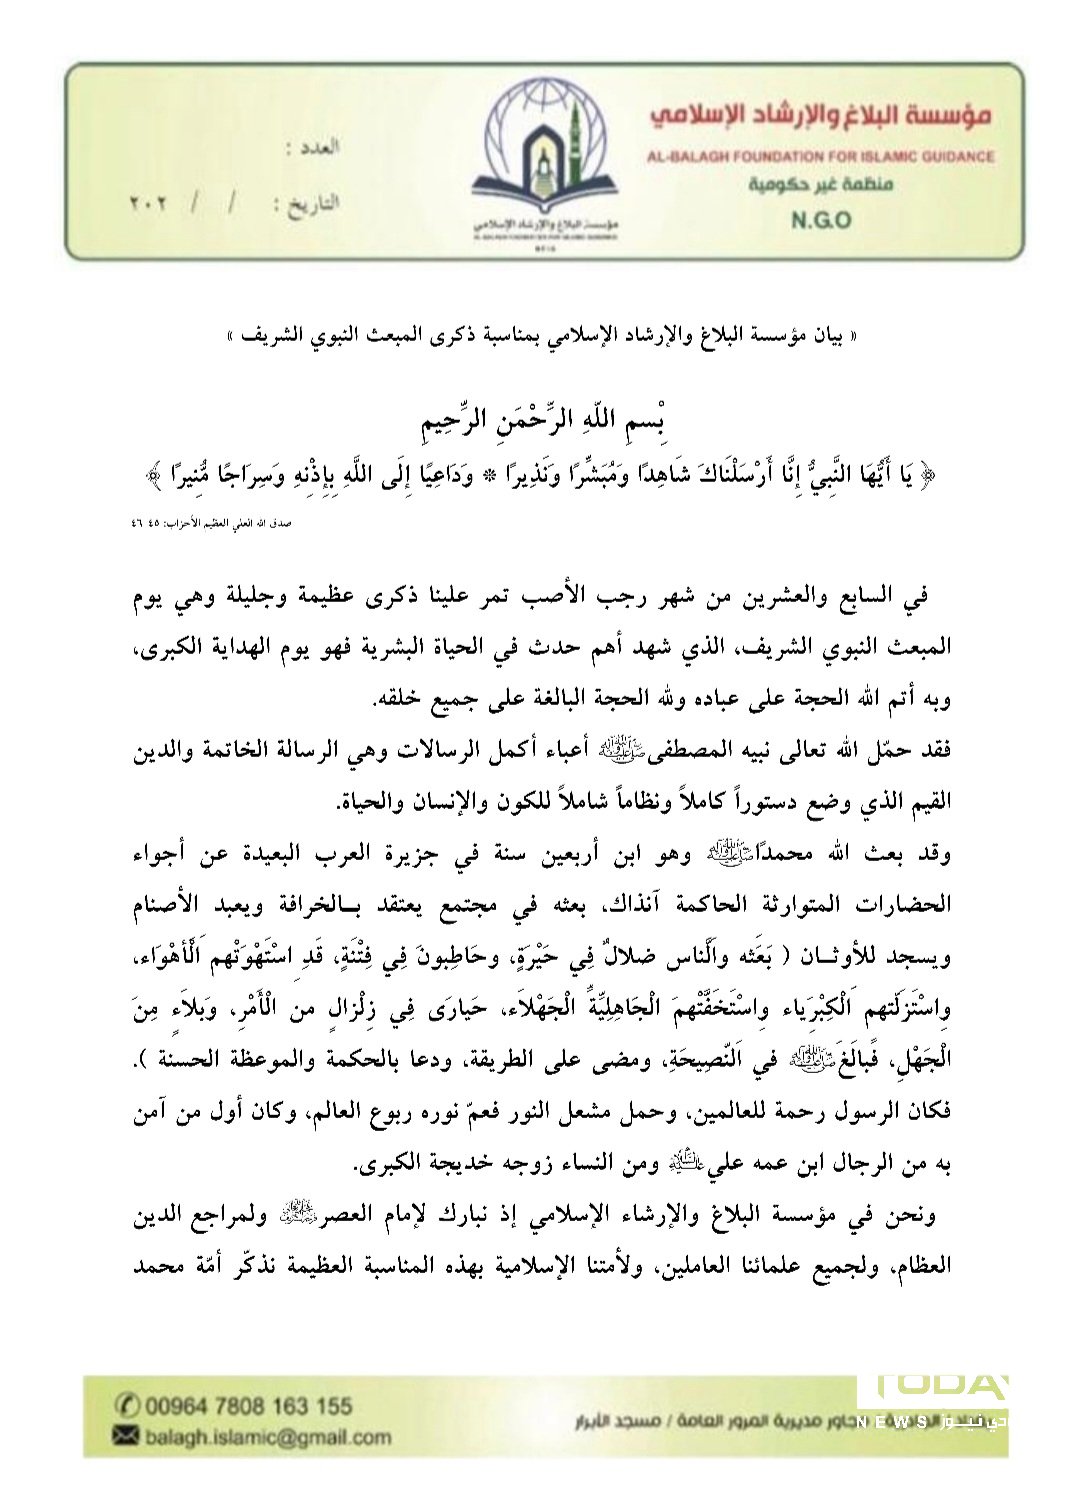 مؤسسة البلاغ والإرشاد الإسلامي
AL-BALAGH FOUNDATION FOR ISLAMIC GUIDANCE
منظمة غير حكومية
N.G.O
مؤسسة البلاغ والإرشاد الإسلامي
AL-BALAGH FOUNDATION FOR ISLAMIC GUIDANCE
العدد :
التاريخ : / / ٢٠٢
« بيان مؤسسة البلاغ والإرشاد الإسلامي بمناسبة ذكرى المبعث النبوي الشريف »
بْسمِ اللّهِ الرِّحْمَنِ الرِّحِيمِ
﴿ يَا أَيُّهَا النَّبِيُّ إِنَّا أَرْسَلْنَاكَ شَاهِدًا وَمُبَشِّرًا وَنَذِيرًا * وَدَاعِيًا إِلَى اللَّهِ بِإِذْنِهِ وَسِرَاجًا مُّنِيرًا ﴾
صدق الله العلي العظيم الأحزاب: ٤٥ ٤٦
في السابع والعشرين من شهر رجب الأصب تمر علينا ذكرى عظيمة وجليلة وهي يوم
المبعث النبوي الشريف، الذي شهد أهم حدث في الحياة البشرية فهو يوم الهداية الكبرى،
وبه أتم الله الحجة على عباده ولله الحجة البالغة على جميع خلقه.
فقد حمّل الله تعالى نبيه المصطفىﷺ أعباء أكمل الرسالات وهي الرسالة الخاتمة والدين
القيم الذي وضع دستوراً كاملاً ونظاماً شاملاً للكون والإنسان والحياة.
وقد بعث الله محمدًاﷺ وهو ابن أربعين سنة في جزيرة العرب البعيدة عن أجواء
الحضارات المتوارثة الحاكمة آنذاك، بعثه في مجتمع يعتقد بـالخرافة ويعبد الأصنام
ويسجد للأوثـان ( بَعَثه والَّناس ضلالٌ فِي حَيْرَةٍ، وحَاطِبونَ فِي فِتْنَةٍ، قَدِ اسْتَهْوَتْهم الَّأهْوَاء،
واِسْتَزلَّتهم الْكِبْرَياء واِسْتَخَفَّتْهمَ الْجَاهِليَّةً الْجَهْلَاَء، حَيارَى فِي زِلْزالٍ من الْأَمْرِ، وَبَلاَءٍ مِنَ
الْجَهْلِ، فًبالَغَﷺ في النّصِيحَةِ، ومضى على الطريقة، ودعا بالحكمة والموعظة الحسنة ).
فكان الرسول رحمة للعالمين، وحمل مشعل النور فعمّ نوره ربوع العالم، وكان أول من آمن
به من الرجال ابن عمه علي ومن النساء زوجه خديجة الكبرى.
ونحن في مؤسسة البلاغ والإرشاء الإسلامي إذ نبارك لإمام العصر ولمراجع الدين
العظام، ولجميع علمائنا العاملين، ولأمتنا الإسلامية بهذه المناسبة العظيمة نذكّر أمّة محمد
00964 7808 163 155
balagh.islamic@gmail.com
مجاور مديرية المرور العامة / مسجد الأبرار
TODAY
NEWS